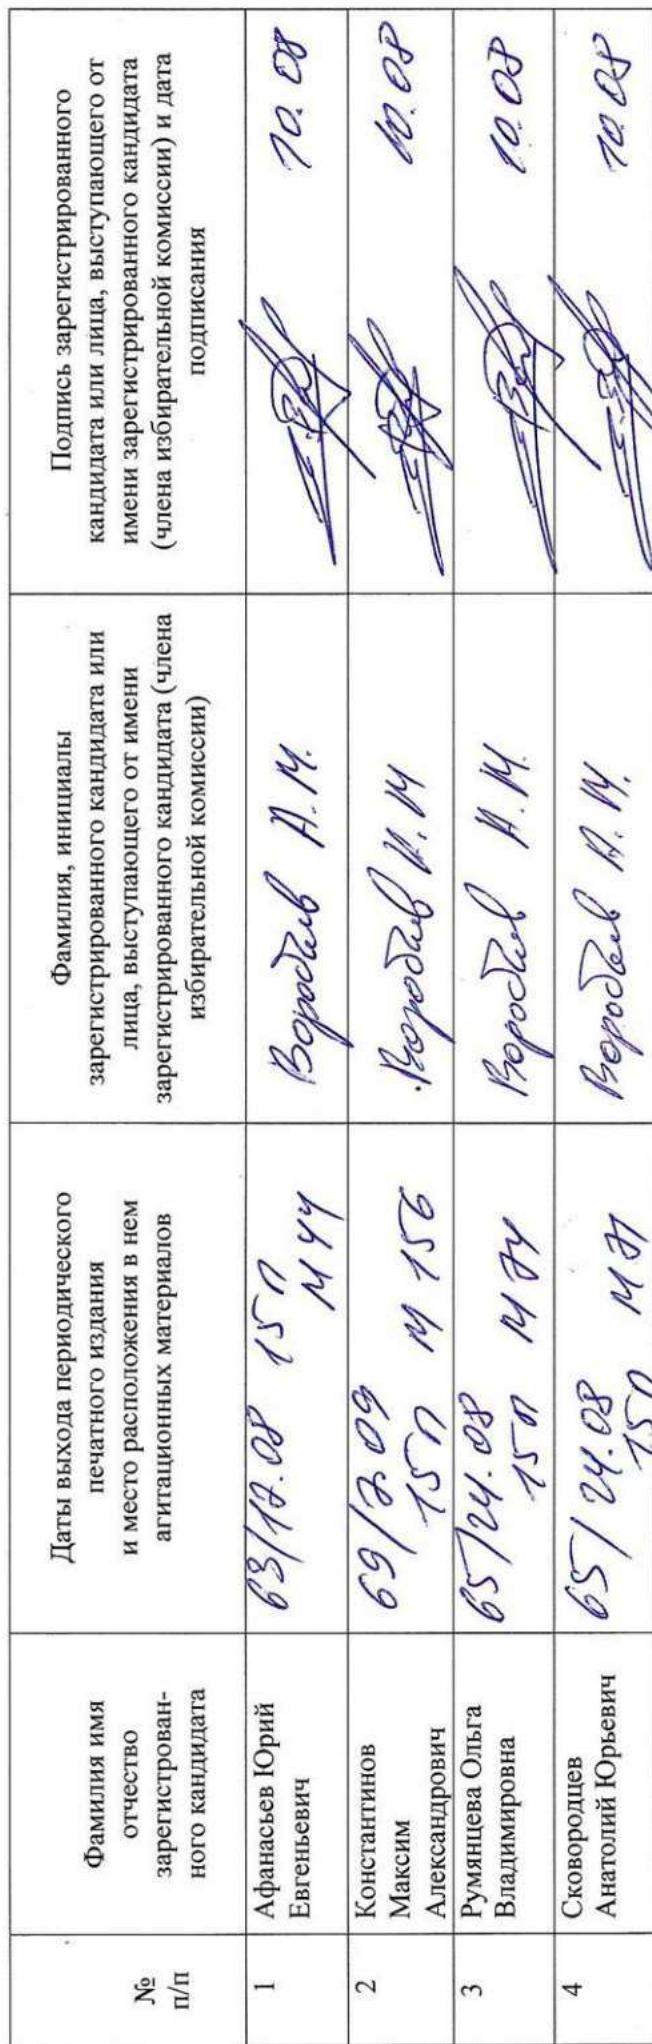 №
п/п
Фамилия имя
отчество
зарегистрирован-
ного кандидата
Даты выхода периодического
печатного издания
и место расположения в нем
агитационных материалов
Фамилия, инициалы
зарегистрированного кандидата или
лица, выступающего от имени
зарегистрированного кандидата (члена
избирательной комиссии)
Подпись зарегистрированного
кандидата или лица, выступающего от
имени зарегистрированного кандидата
(члена избирательной комиссии) и дата
подписания
1
Афанасьев Юрий
Евгеньевич
63/17.08 15п
М 44
Воробьев А.М.
10.08
2
Константинов
Максим
Александрович
69/7.09
15п М 156
Воробьев А.М
10.08
3
Румянцева Ольга
Владимировна
65/24.08
15п М 74
Воробьев А.М.
10.08
4
Сковородцев
Анатолий Юрьевич
65/24.08
15п М 71
Воробьев А.М.
10.08